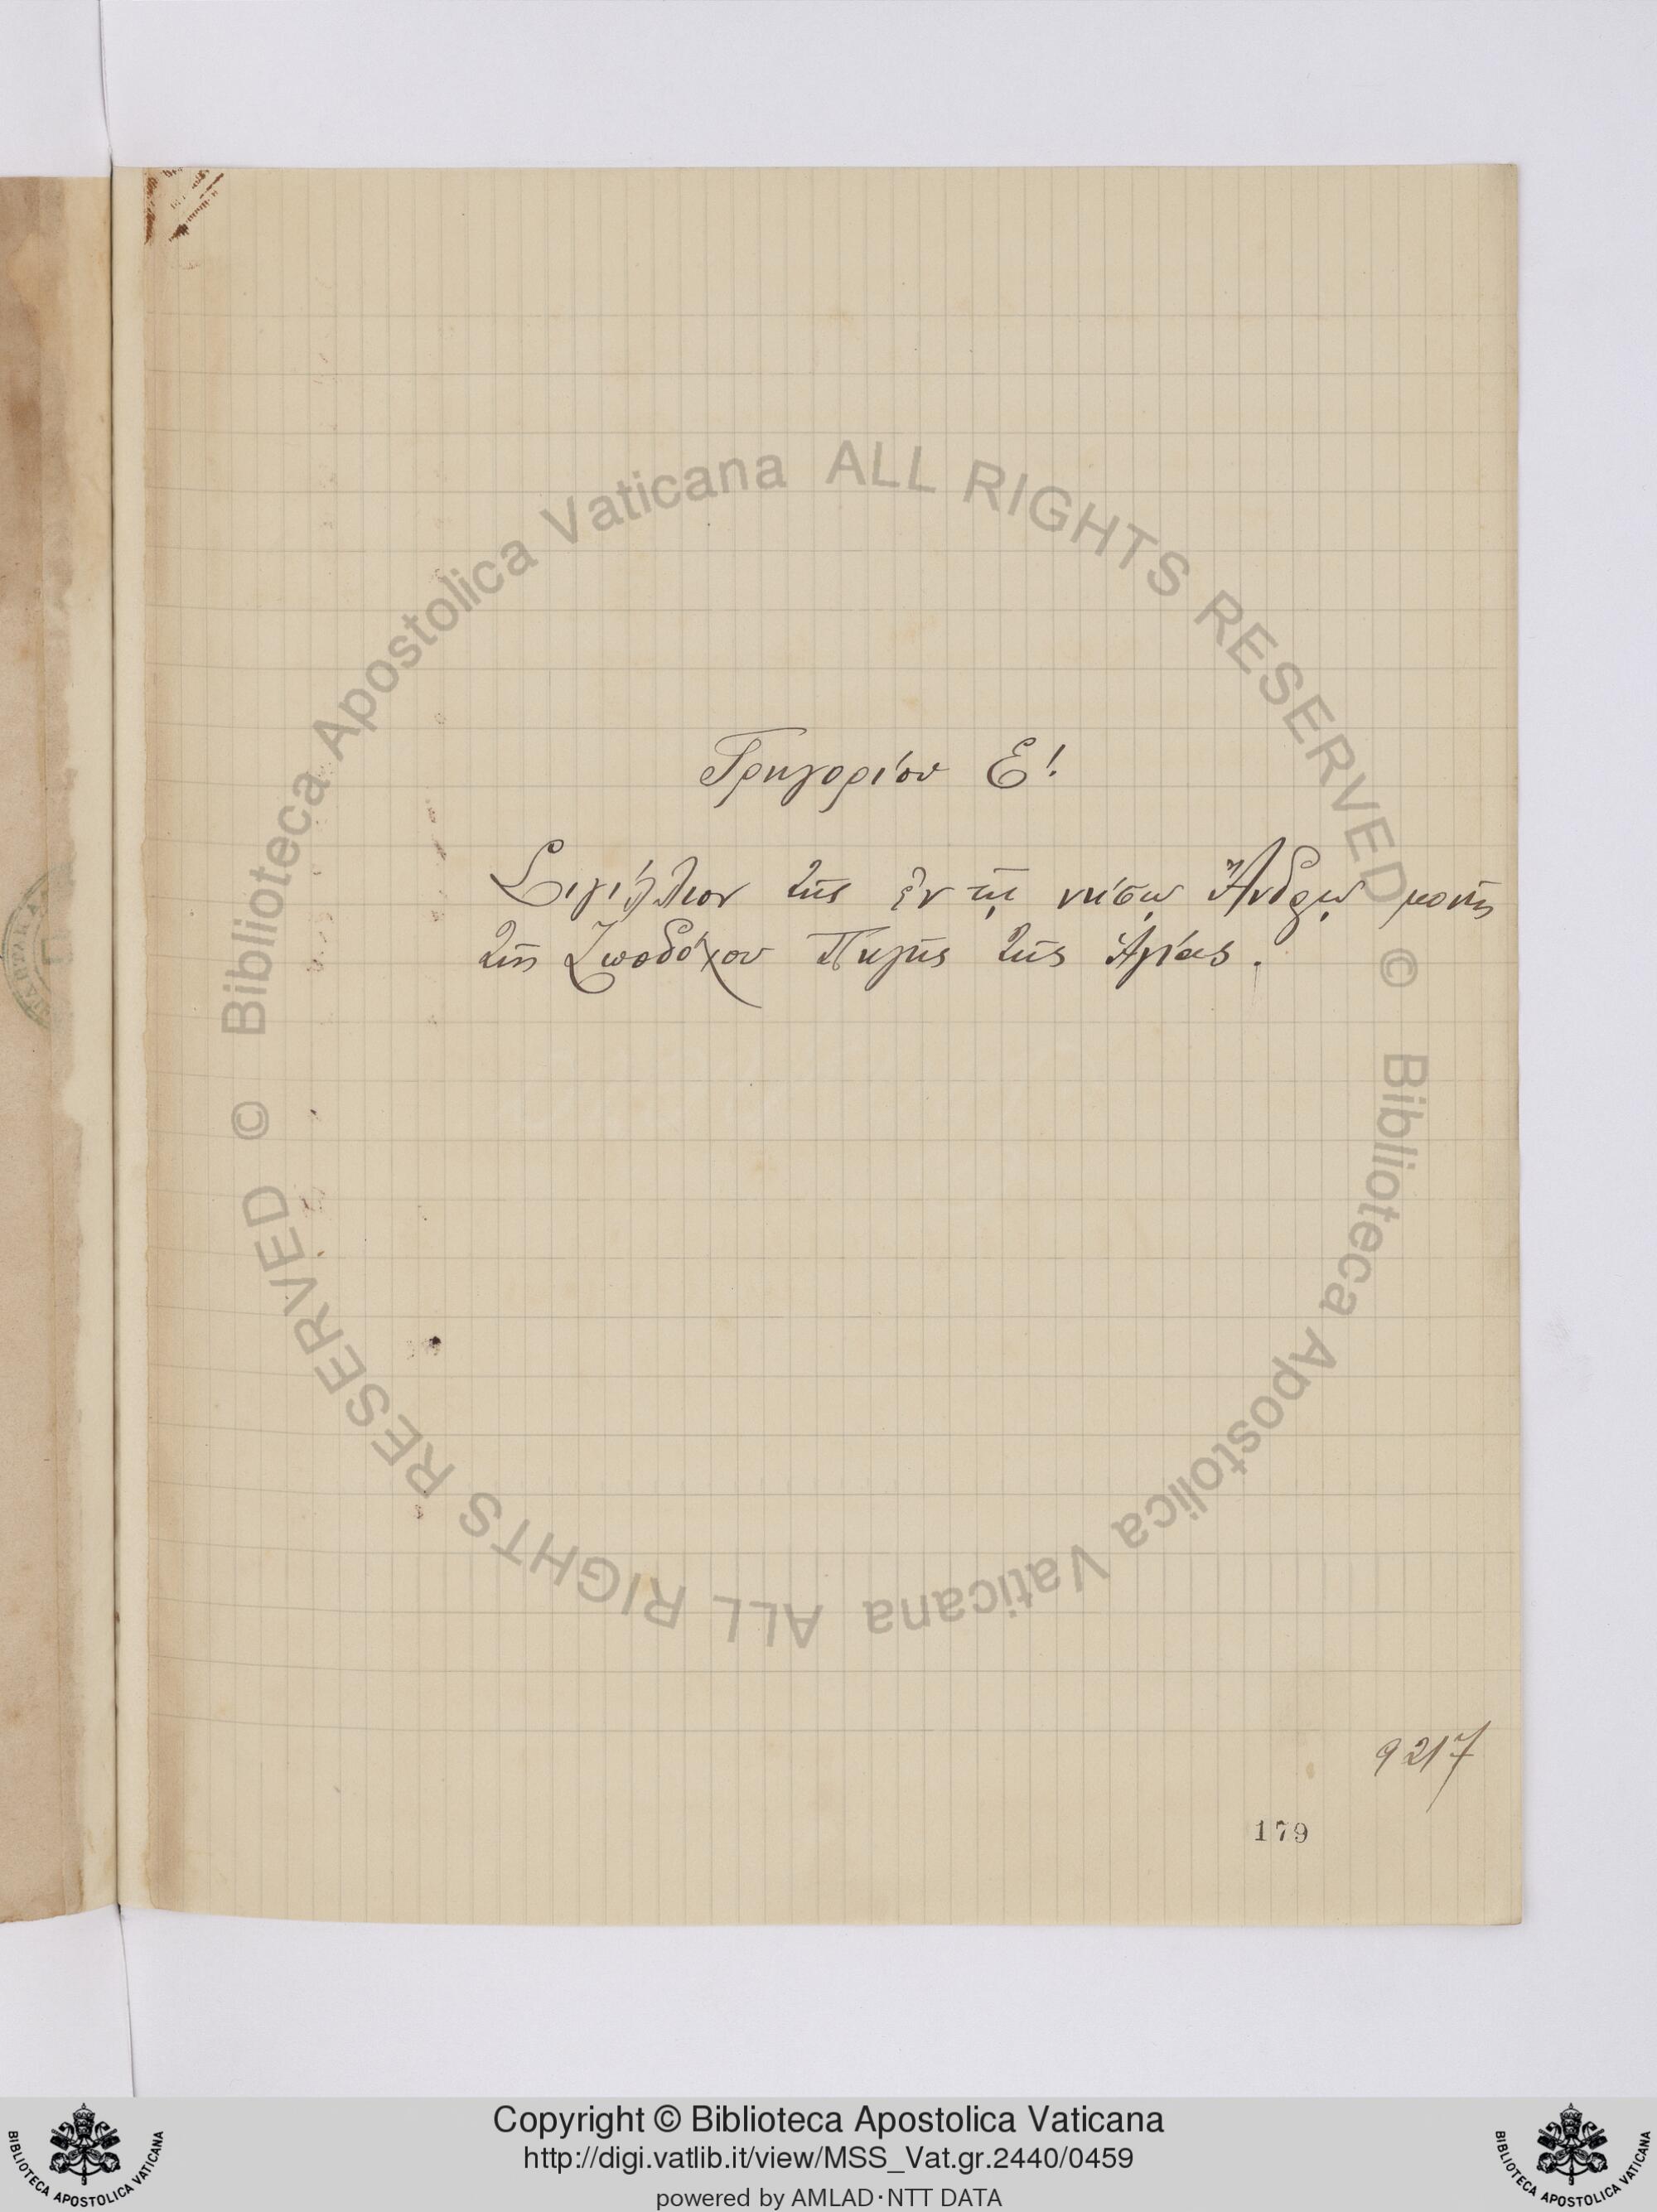 Γρηγορίου Ε'.
Σιγίλλιον τῆς ἐν τῇ νήσῳ Ἄνδρῳ μονῆς
τῆς Ζωοδόχου Πηγῆς τῆς Ἁγίας.
9217
179
© Biblioteca Apostolica Vaticana ALL RIGHTS RESERVED
© Biblioteca Apostolica Vaticana ALL RIGHTS RESERVED
Copyright © Biblioteca Apostolica Vaticana
http://digi.vatlib.it/view/MSS_Vat.gr.2440/0459
powered by AMLAD·NTT DATA
BIBLIOTECA APOSTOLICA VATICANA
BIBLIOTECA APOSTOLICA VATICANA